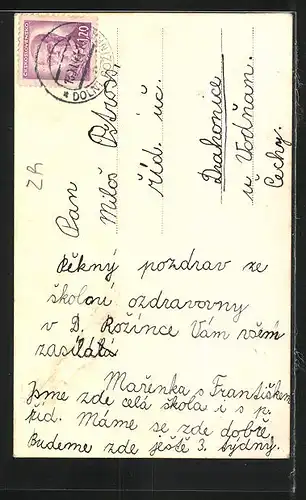 ČESKOSLOVENSKO
1.20
DOLNÍ
ZR
Pan
Miloš
říd. uč.
Drahonice
u Vodňan.
Čechy.
Pěkný pozdrav ze
školní ozdravovny
v D. Rožínce Vám všem
zasílá
Mařenka s Františkem
Jsme zde celá škola i s p.
říd. Máme se zde dobře,
Budeme zde ještě 3. týdny.